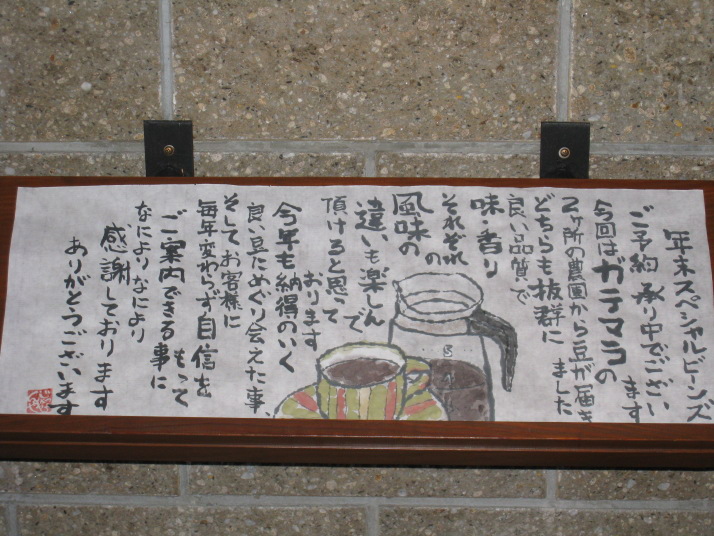 年末スペシャルビーンズ
ご予約承り中でござい
ます
今回はガテマラの
2ヶ所の農園から豆が届き
ました
どちらも抜群に
良い品質で
味・香り
それぞれの
風味の
違いも楽しん
で
頂けると思って
おります
今年も納得のいく
良い豆ためぐり会えた事、
そしてお客様に
毎年変わらず自信を
もって
ご案内できる事に
なによりなにより
感謝しております
ありがとうございます